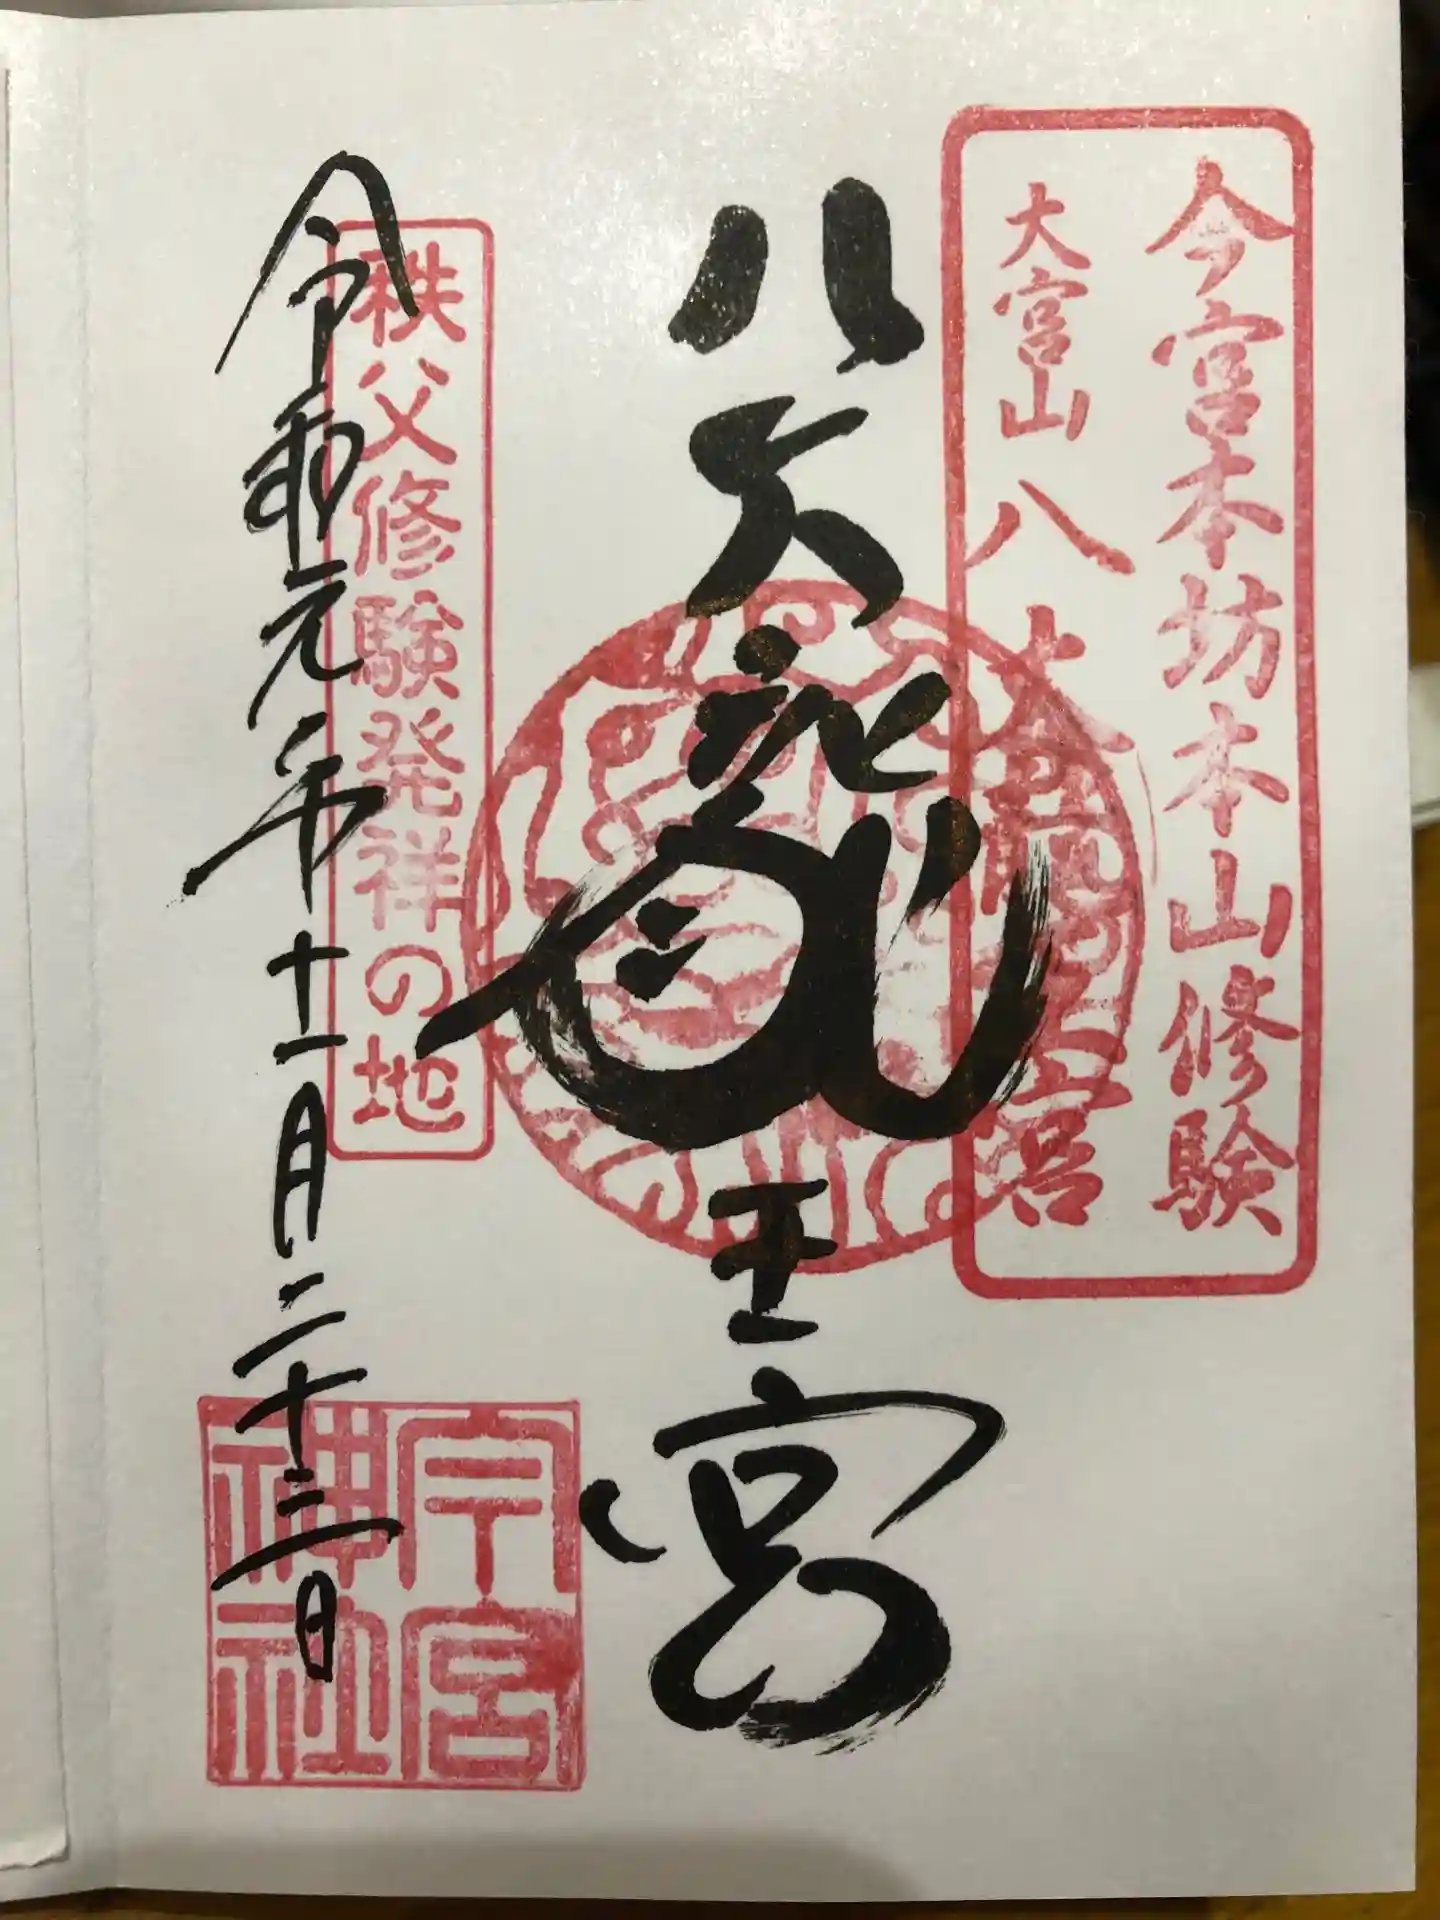 今宮本坊本山修験
大宮山 八大龍王宮
八大龍王宮
秩父修験発祥の地
令和元年十一月二十三日
今宮
神社